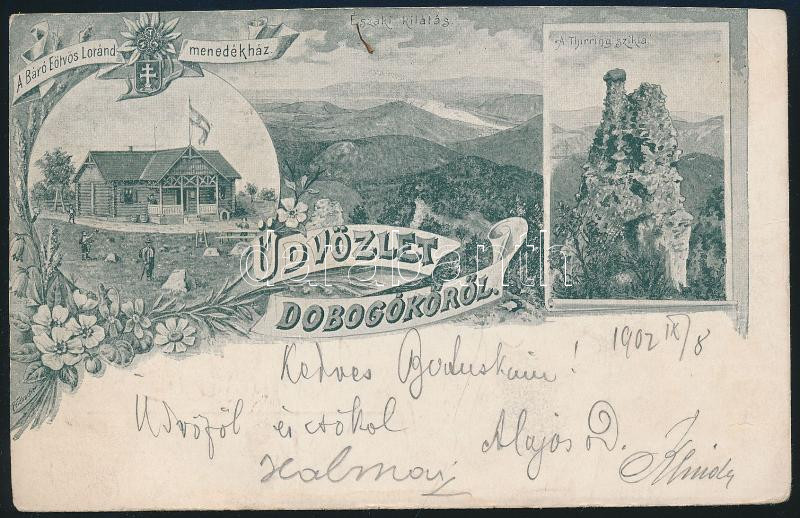 Északi kilátás.
A Báró Eötvös Loránd menedékház.
A Thirring szikla.
ÜDVÖZLET
DOBOGÓKŐRŐL.
darabanth
1902 IX/8
Kedves
Üdvözöl és csókol
Alajos
Halmay